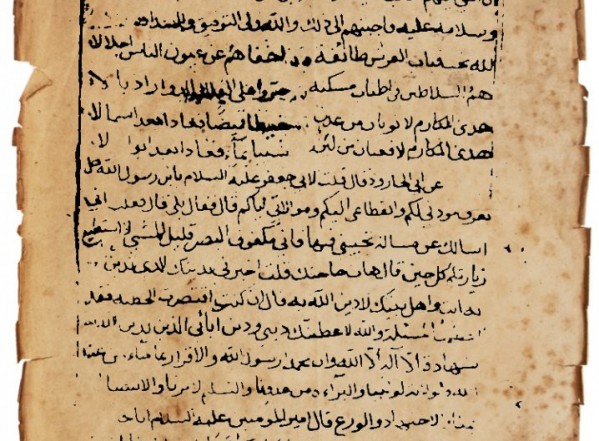 وسلامه عليه فاجبتهم الى ذلك والله ولى التوفيق والسداد
لله تحت قباب العرش طائفة اخفاهم عن عيون الناس اجلالا
هم السلاطين فى اطمار مسكنة
هذى المكارم لا ثوبان من عدن خيطا قميصا فعادا بعد اسمالا
هذى المكارم لا قعبان من لبن شيبا بماء فعادا بعد ابوالا
عن ابى الجارود قال قلت لابى جعفر عليه السلام يابن رسول الله هل
تعرف مودتى لكم وانقطاعى اليكم وموالاتى اياكم قال فقال بلى قال فقلت انى
اسالك عن مسالة تجيبنى فيها فانى مكفوف البصر قليل المشى لا استطيع
زيارتكم كل حين قال هات حاجتك قلت اخبرنى بدينك الذى تدين
به انت واهل بيتك لادين الله به قال ان كنت اقصرت الخطبة فقد
المسئلة والله لاعطينك دينى ودين ابائى الذين ندين الله به
شهادة ان لا اله الا الله وان محمدا رسول الله والاقرار بما جاء من عند
الله والولاية لولينا والبراءة من عدونا والتسليم لامرنا وانتظار
والاجتهاد والورع قال امير المومنين عليه السلام